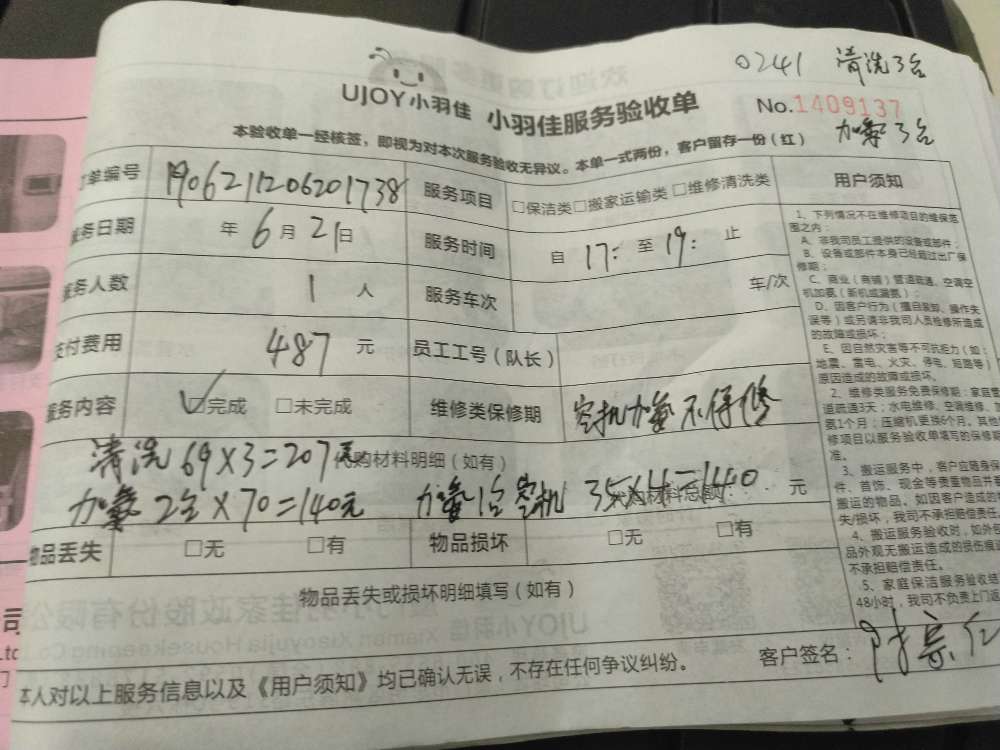 0241 清洗3台
UJOY小羽佳 小羽佳服务验收单 No.1409137
加氨3台
本验收单一经核签，即视为对本次服务验收无异议。本单一式两份，客户留存一份（红）
订单编号 1906211206201738 服务项目 □保洁类□搬家运输类□维修清洗类 用户须知
服务日期 年6月21日 服务时间 自17:至19:止
服务人数 1人 服务车次 车/次
支付费用 487元 员工工号（队长）
服务内容 ☑完成 □未完成 维修类保修期 空机加氨不保修
清洗69×3=207元 代购材料明细（如有）
加氨2台×70=140元 加氨1台空机 35×4=140 代购材料总额: 元
物品丢失 □无 □有 物品损坏 □无 □有
物品丢失或损坏明细填写（如有）
本人对以上服务信息以及《用户须知》均已确认无误，不存在任何争议纠纷。 客户签名：
1、下列情况不在维修项目的维保范
围之内：
A、非我司员工提供的设备或部件；
B、设备或部件本身已经超过出厂保
修期；
C、商业（商铺）管道疏通、空调空
机加氨（新机或漏氨）；
D、因客户行为（擅自装卸、操作失
误等）或另请非我司人员检修所造成
的故障或损坏；
E、因自然灾害等不可抗拒力（如：
地震、雷电、火灾、停电、短路等）
原因造成的故障或损坏。
2、维修类服务免费保修期：家庭管
道疏通3天；水电维修、空调维修、
氨1个月；压缩机更换6个月。其他
修项目以服务验收单填写的保修期
准。
3、搬运服务中，客户应随身保
件、首饰、现金等贵重物品并
搬运的物品。如因客户造成的
失/损坏，我司不承担赔偿责任
4、搬运服务验收时，如外包
品外观无搬运造成的损伤痕迹
不承担赔偿责任。
5、家庭保洁服务验收结
48小时，我司不负责上门返
司
Ltd